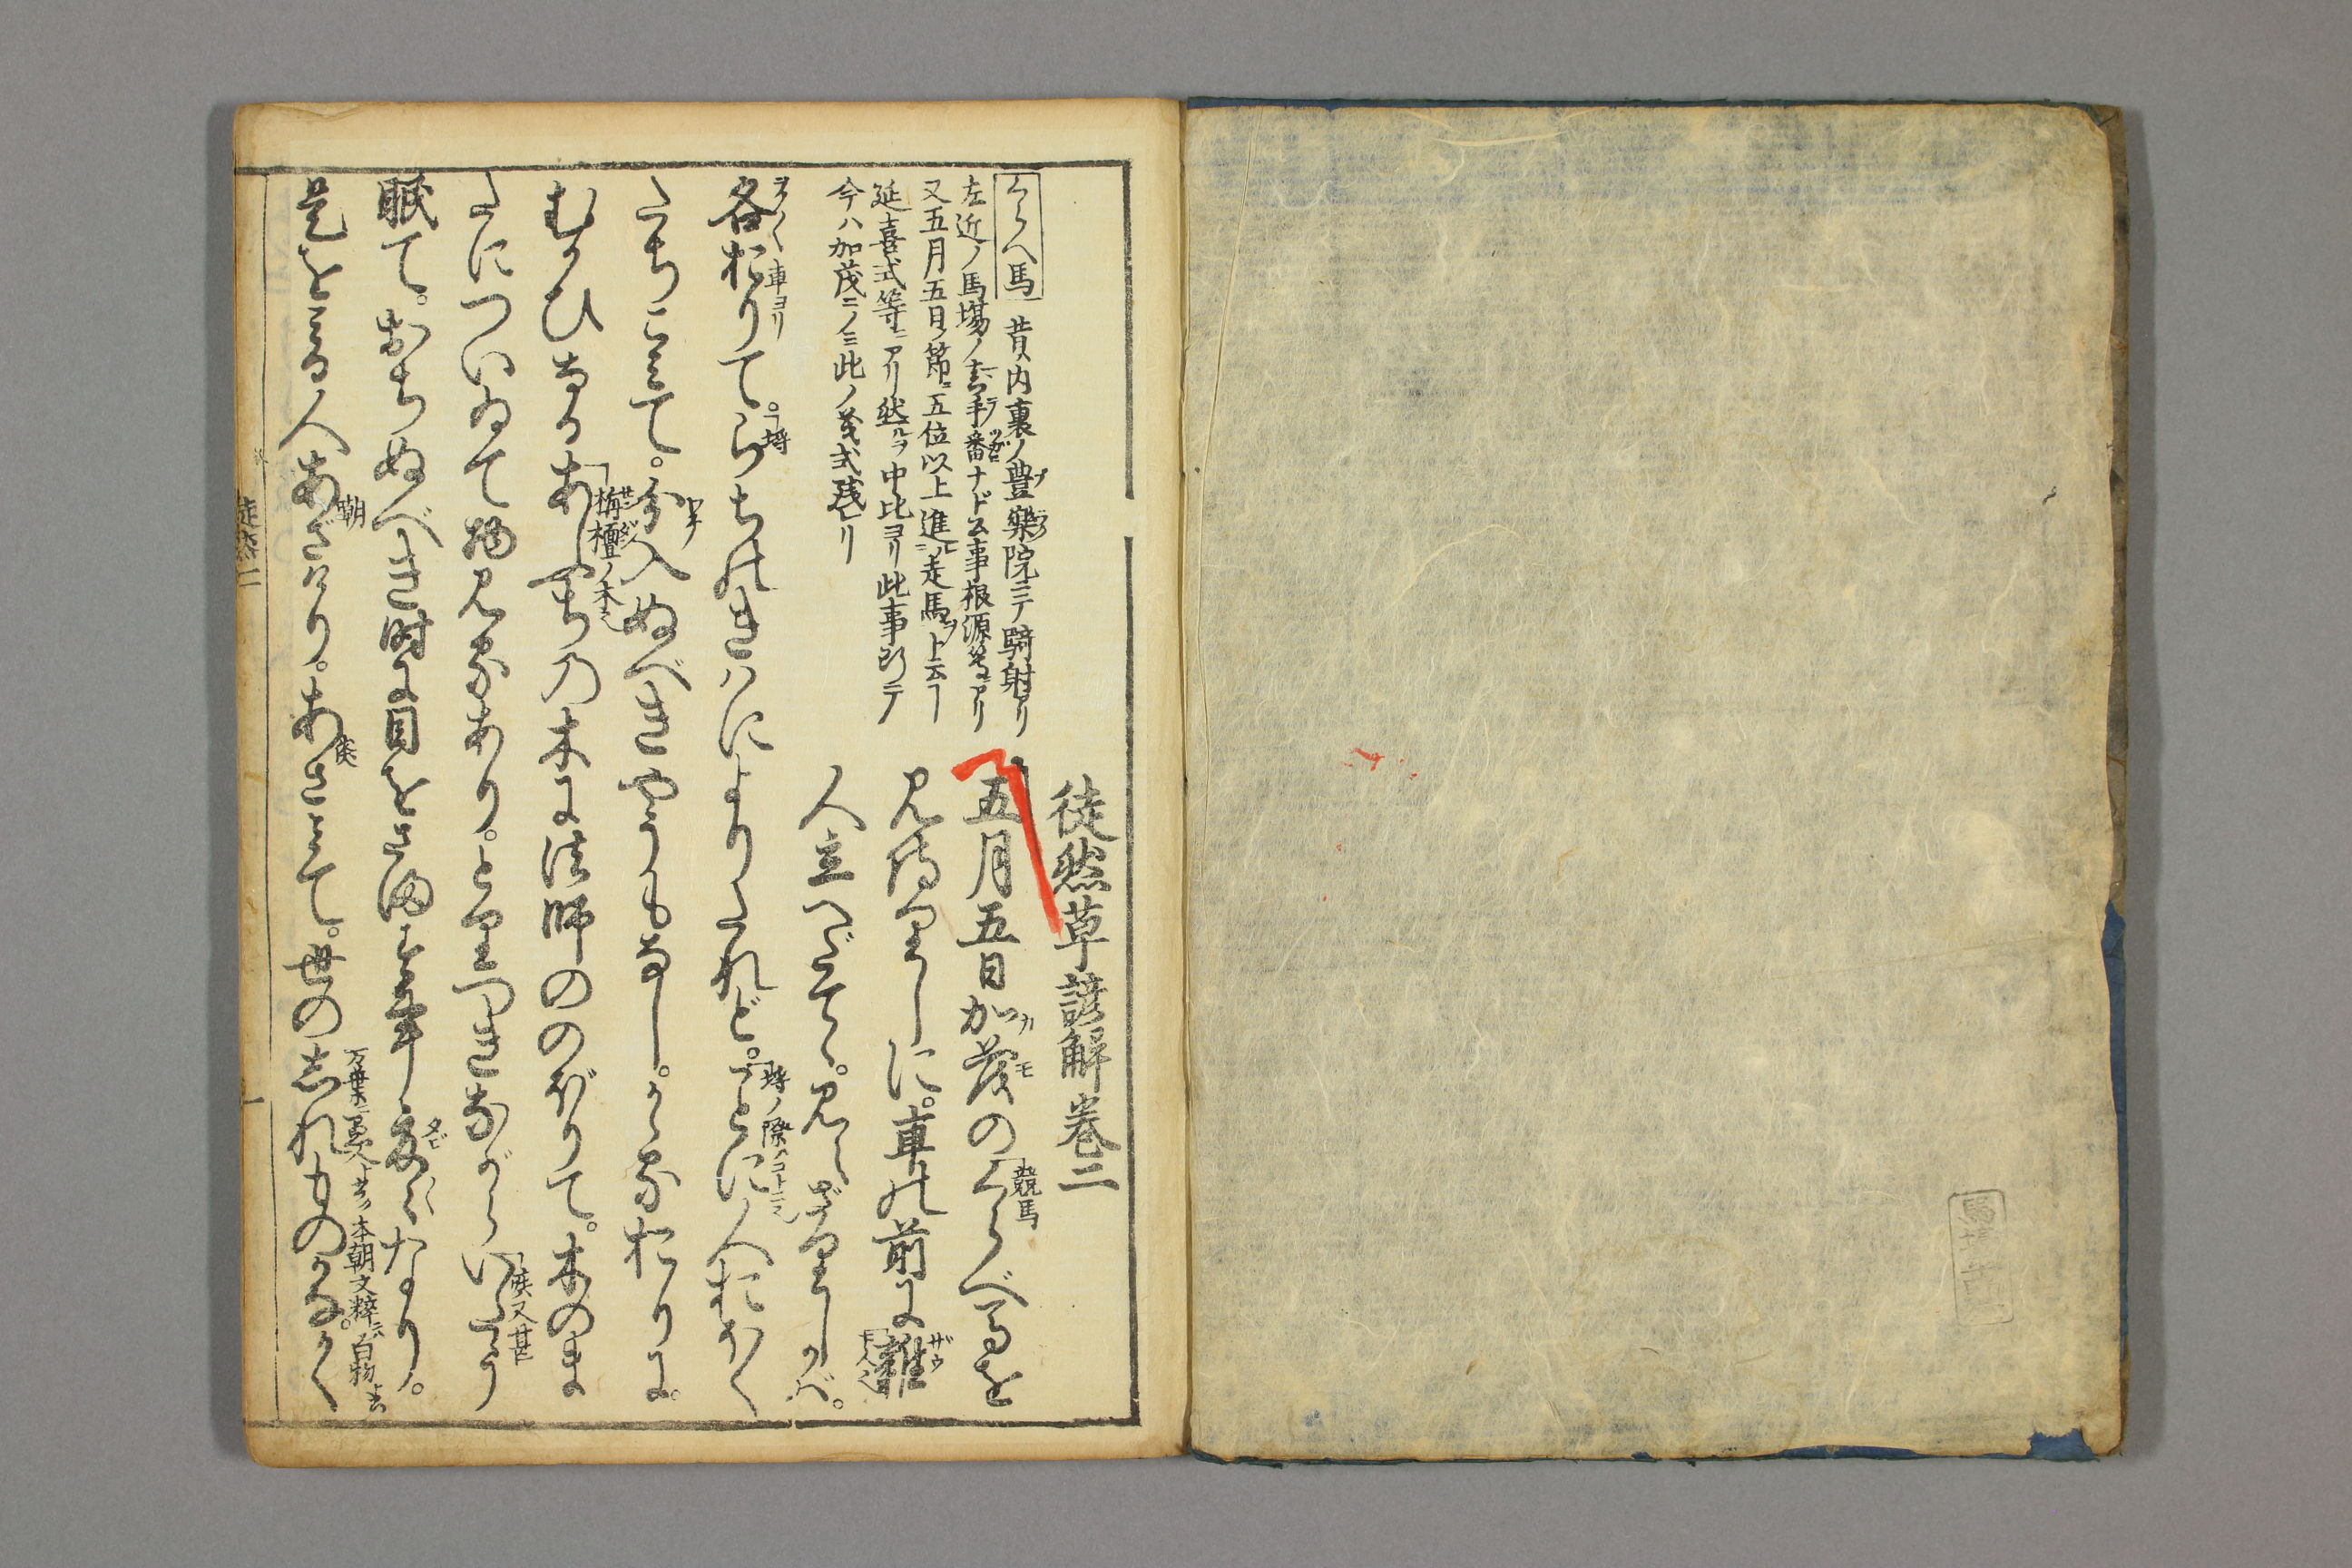 徒然草諺解巻二
五月五日加茂のくらべ馬を
カモ
競馬
見侍りしに。車の前に雑
ザウ
人立へだてゝ。見えざりしかば。
くらへ馬
昔ハ内裏ノ豊楽院ニテ騎射アリ
左近ノ馬場ノ真手番ナド公事根源等ニアリ
又五月五日ノ節ニ五位以上進ル走馬ヲト云フ
延喜式等ニアリ然ルヲ中比ヨリ此事断テ
今ハ加茂ニノミ此ノ義式残レリ
各おりて。らちのきはによりたれど。ことに人おほく
車ヨリ
ラ埒
埒ノ際ノコト也
たちこみて。分入ぬべきやうもなし。かゝるおりに。
ワケ
むかひなるあふちの木に法師ののぼりて。木のま
栴檀ノ木也
センダン
たについゐて物見るあり。とりつきながらいたう
疾又甚
眠て。おちぬべき時に目をさます事度々なり。
タビ〱
是をみる人あざけりあさみて。世のしれものかな。かく
朝
万葉ニ
本朝文粋ニハ白物ト云
徒然二
一